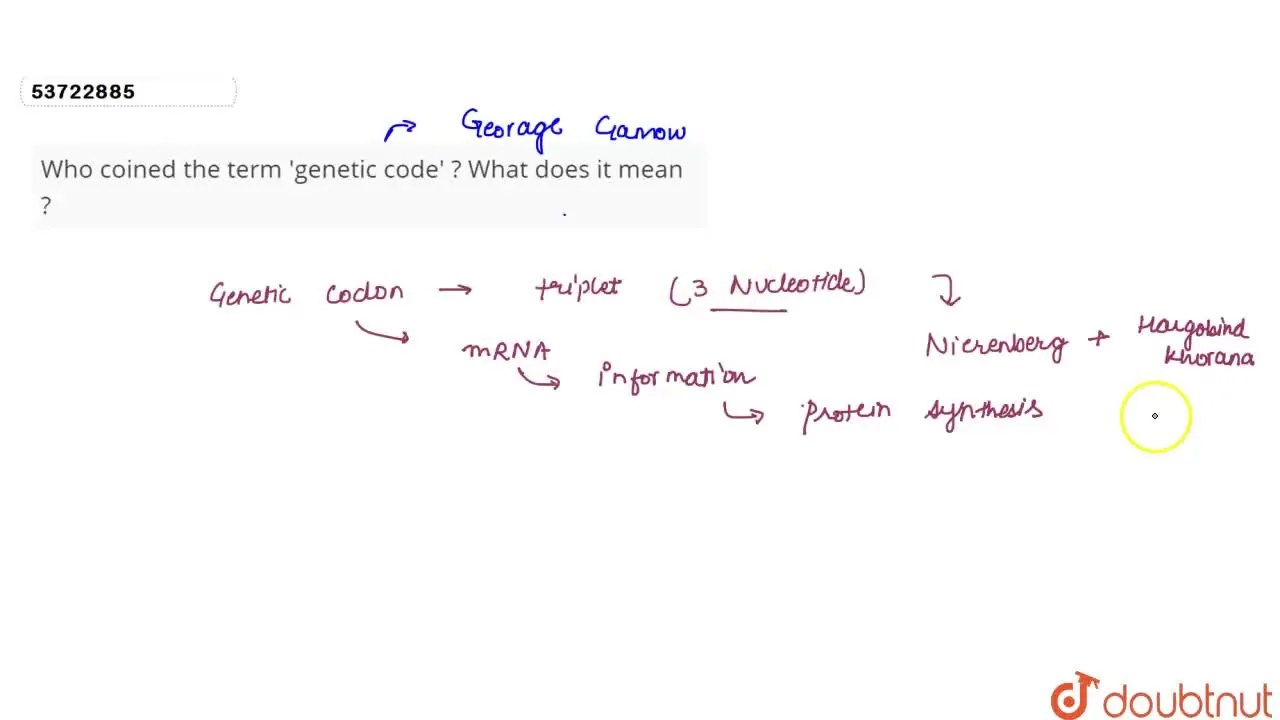 53722885
Georage Gamow
Who coined the term 'genetic code' ? What does it mean
?
Genetic codon → triplet (3 Nucleotide)
Nierenberg + Hargobind
Khorana
mRNA
information
Protein synthesis
doubtnut